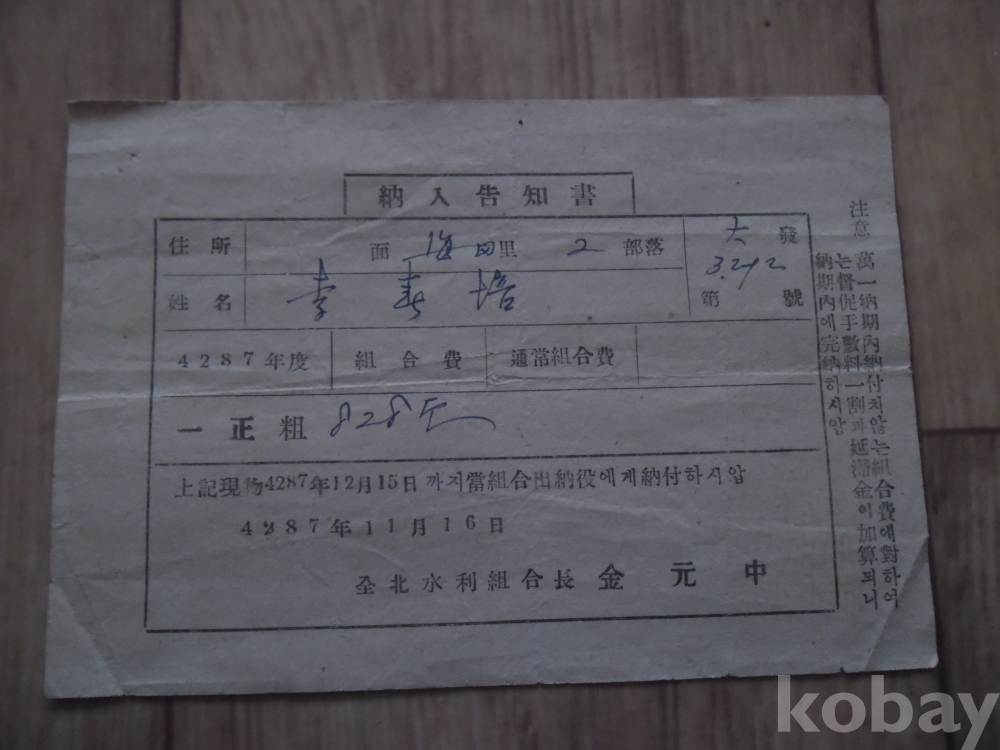 納入告知書
住所 面 海田里 2 部落 大 發
姓名 李 春 培 第 3.212 號
4287年度 組合費 通常組合費
一 正粗 828斤
上記現物4287年12月15日까지當組合出納役에게納付하시압
4287年11月16日
全北水利組合長 金元中
注意
萬一納期內納付치않는組合費에對하여
는督促手數料一割과延滯金이加算되니
納期內에完納하시압
kobay